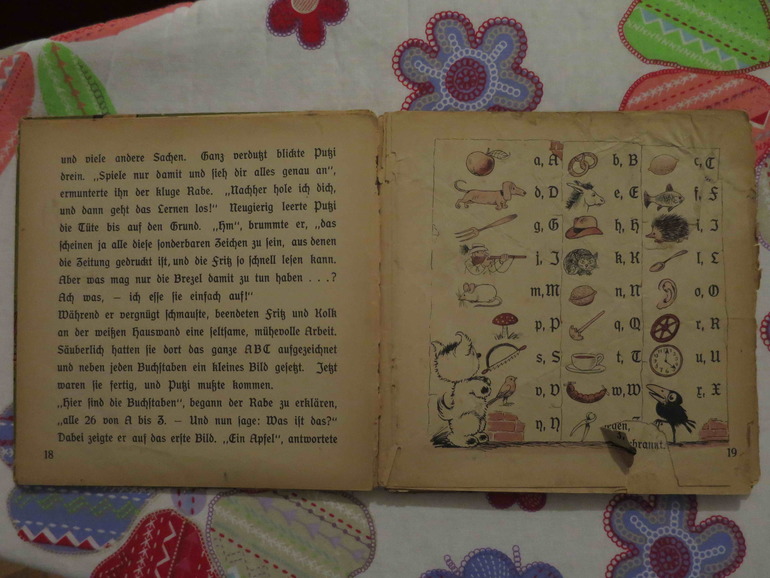 und viele andere Sachen. Ganz verdutzt blickte Putzi
drein. „Spiele nur damit und sieh dir alles genau an“,
ermunterte ihn der kluge Rabe. „Nachher hole ich dich,
und dann geht das Lernen los!“ Neugierig leerte Putzi
die Tüte bis auf den Grund. „Hm“, brummte er, „das
scheinen ja alle diese sonderbaren Zeichen zu sein, aus denen
die Zeitung gedruckt ist, und die Fritz so schnell lesen kann.
Aber was mag nur die Brezel damit zu tun haben . . . ?
Ach was, — ich esse sie einfach auf!“
Während er vergnügt schmauste, beendeten Fritz und Kolk
an der weißen Hauswand eine seltsame, mühevolle Arbeit.
Säuberlich hatten sie dort das ganze ABC aufgezeichnet
und neben jeden Buchstaben ein kleines Bild gesetzt. Jetzt
waren sie fertig, und Putzi mußte kommen.
„Hier sind die Buchstaben“, begann der Rabe zu erklären,
„alle 26 von A bis Z. — Und nun sage: Was ist das?“
Dabei zeigte er auf das erste Bild. „Ein Apfel“, antwortete
18
a, A b, B c, C
d, D e, E f, F
g, G h, H i, I
j, J k, K l, L
m, M n, N o, O
p, P q, Q r, R
s, S t, T u, U
v, V w, W x, X
y, Y
19